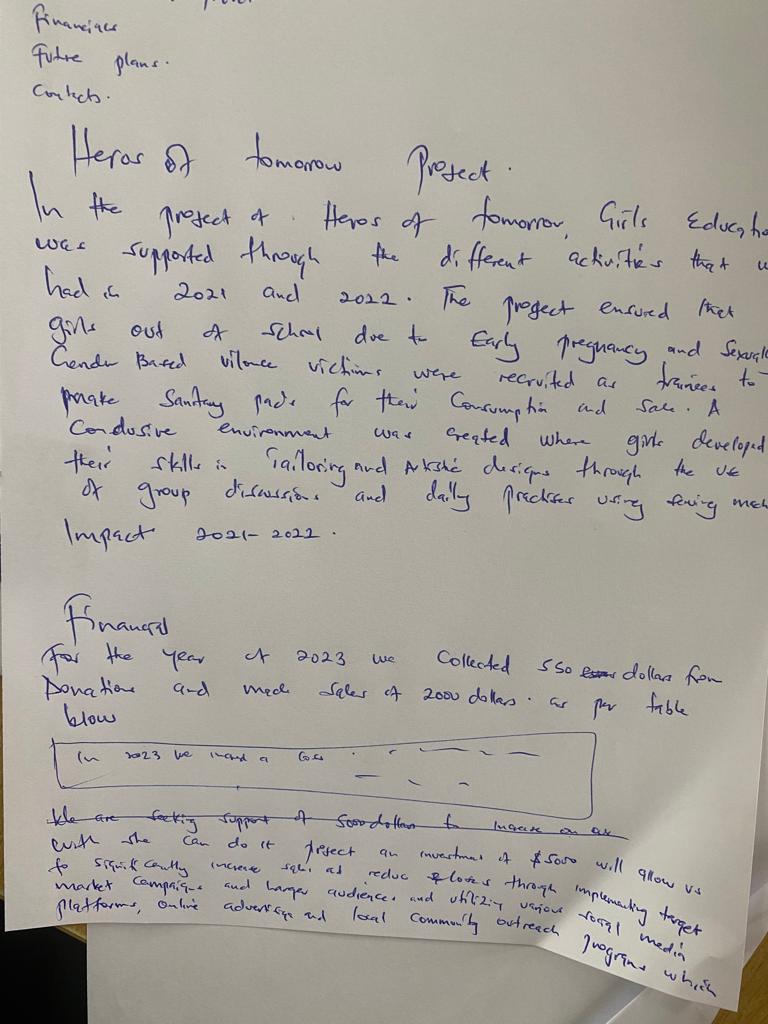 Financials
Future plans.
Contacts.
Heros of tomorrow Project.
In the project of Heros of tomorrow, Girls Educatio
was supported through the different activities that w
had in 2021 and 2022. The project ensured that
girls out of school due to Early pregnancy and Sexual
Gender Based vilence victims were recruited as trainees to
make Sanitary pads for their Consumption and Sale. A
Condusive environment was created where girls developed
their skills in Tailoring and Artistic designs through the use
of group discussions and daily practises using sewing mach
Impact 2021-2022.
Financial
For the year of 2023 we Collected 550 dollars from
Donations and made Sales of 2000 dollars. as per table
blow
In 2023 we a
We are seeking support of 5000 dollars to increase on our
With she can do it project an investment of $5000 will allow us
to significantly increase sales ad reduc loses through implementing target
market Campaigns and larger audiences and utilizing various social media
platforms, online advertising and local community outreach programs which